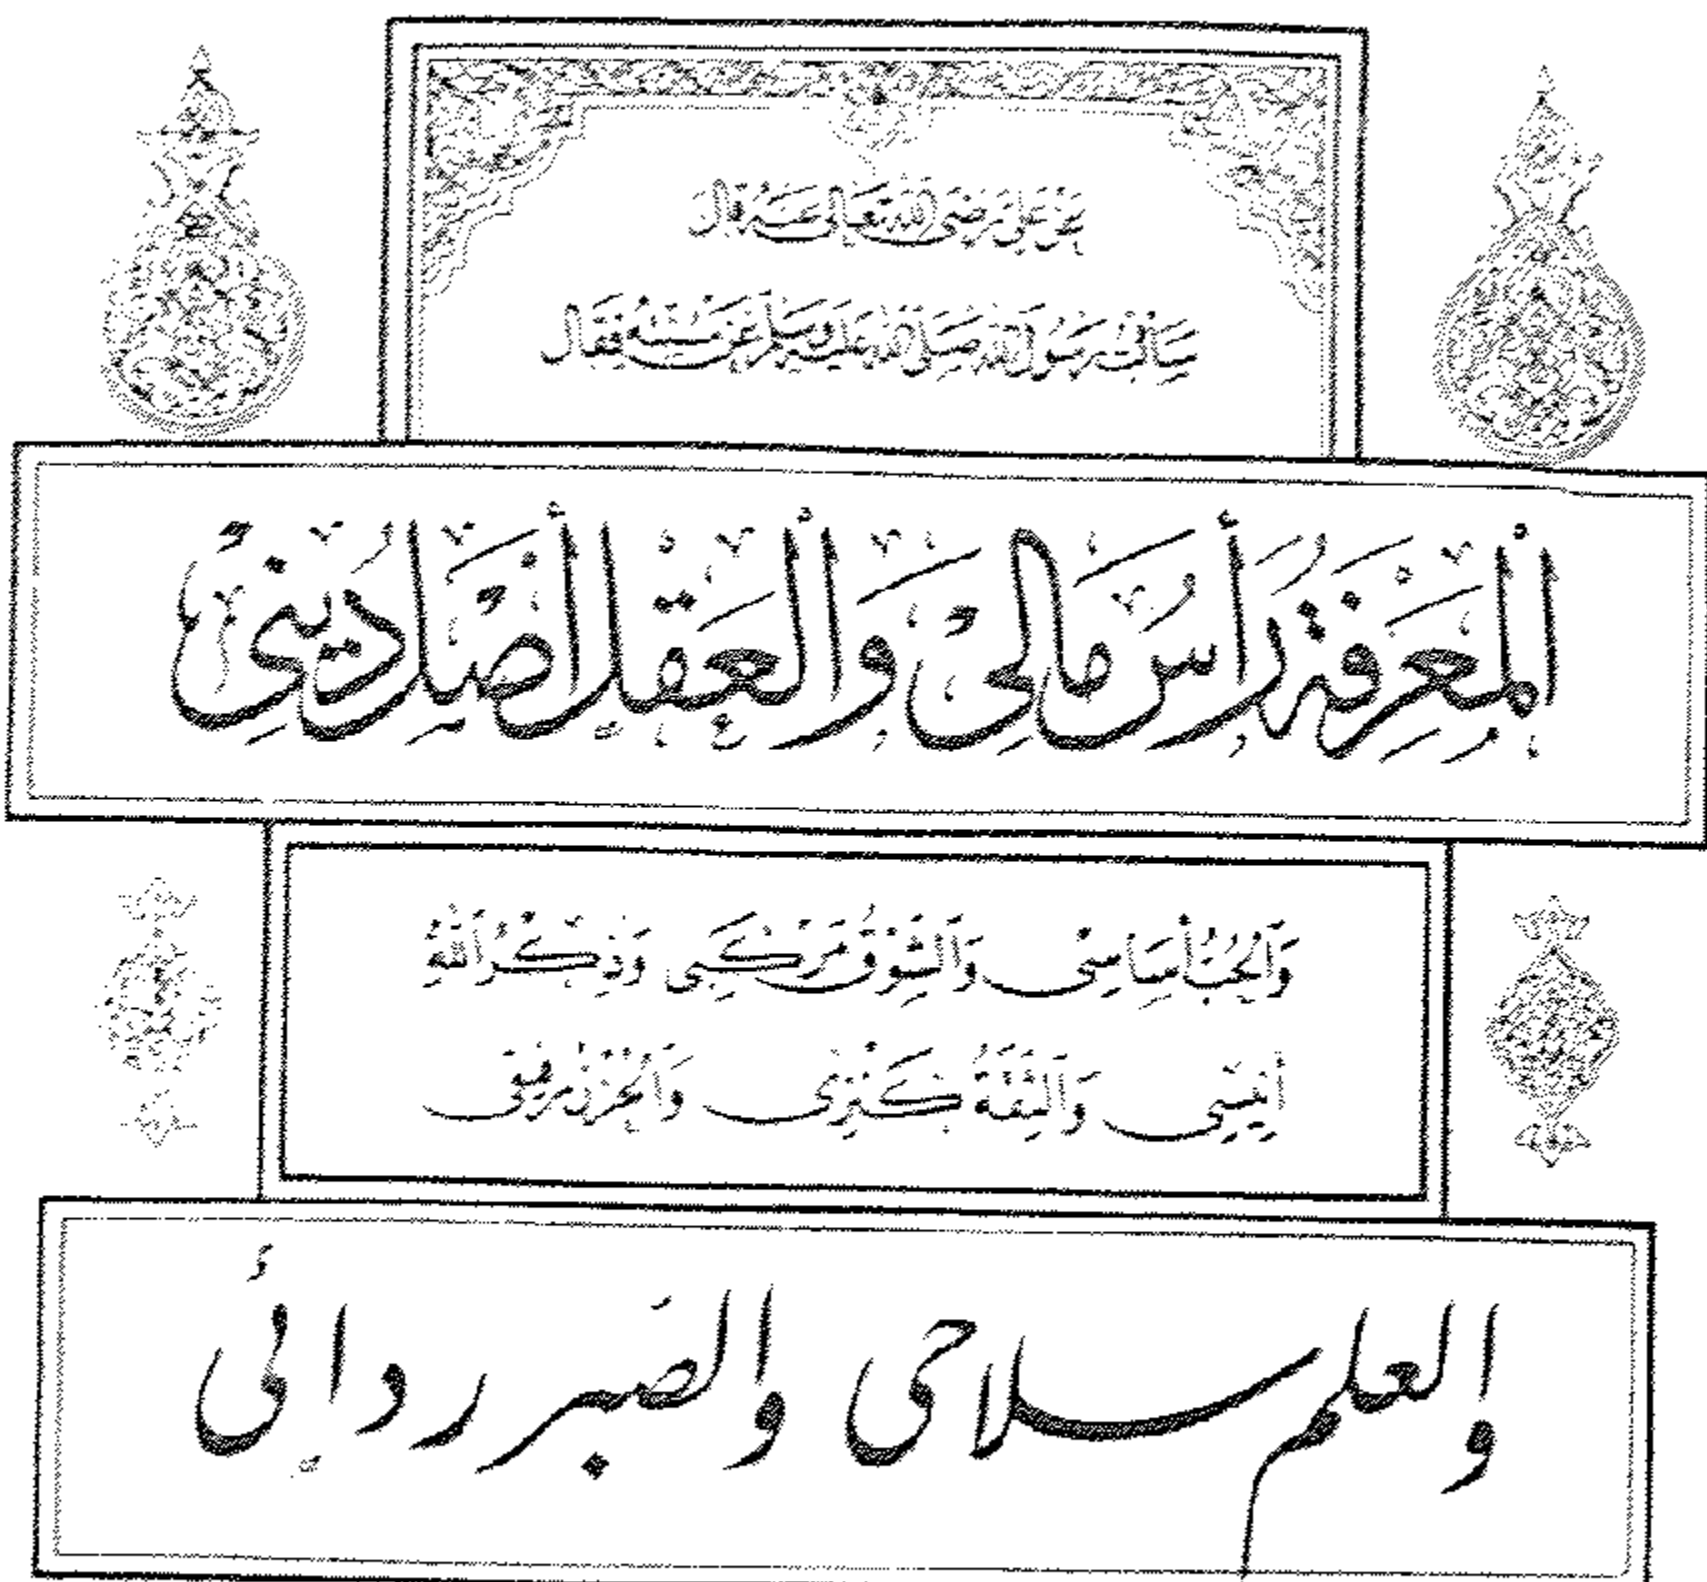 عَنْ عَلِيٍّ رَضِيَ اللهُ تَعَالَى عَنْهُ قَالَ
سَأَلْتُ رَسُولَ اللهِ صَلَّى اللهُ عَلَيْهِ وَسَلَّمَ عَنْ سُنَّتِهِ فَقَالَ
اَلْمَعْرِفَةُ رَأْسُ مَالِى وَالْعَقْلُ أَصْلُ دِينِى
وَالْحُبُّ أَسَاسِى وَالشَّوْقُ مَرْكَبِى وَذِكْرُ اللهِ
أَنِيسِى وَالثِّقَةُ كَنْزِى وَالْحُزْنُ رَفِيقِى
والعلم سلاحى والصَبر ردائى